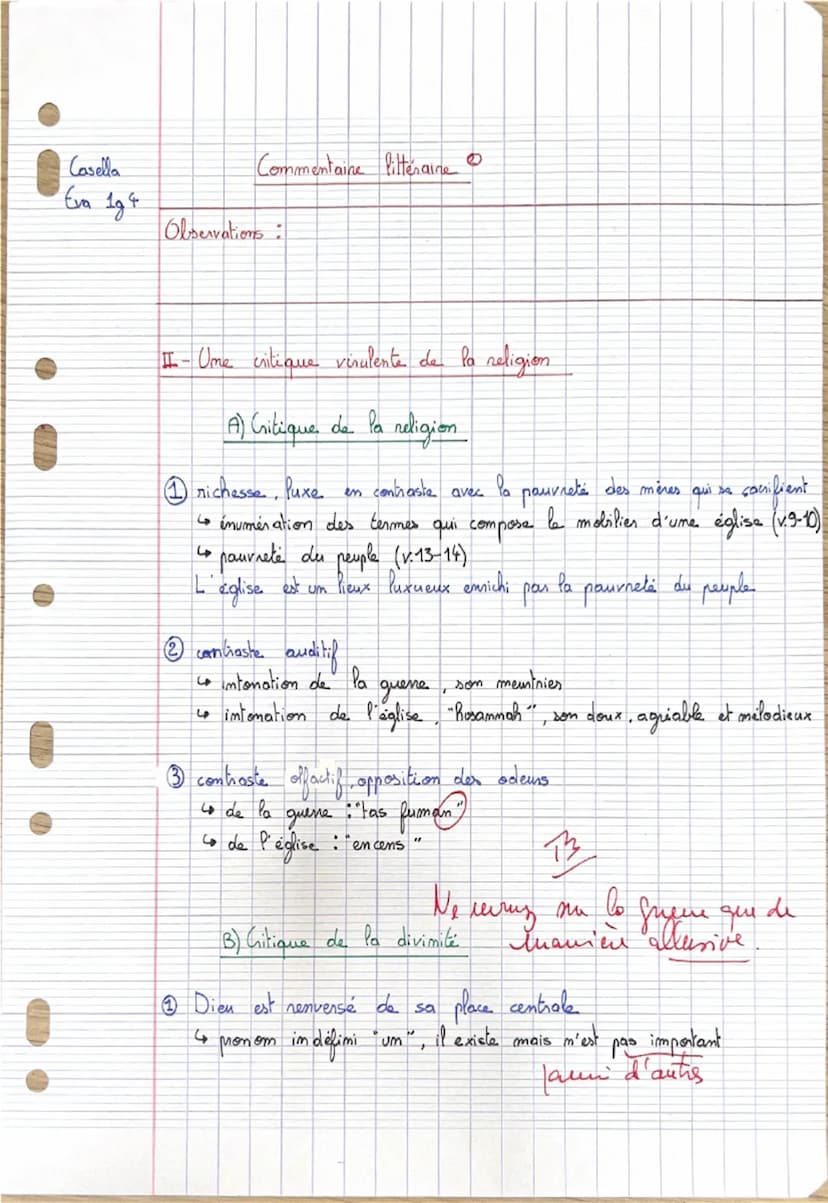 Casella
Eva 1g4
Commentaire littéraire ②
Observations :
II - Une critique virulente de la religion
A) Critique de la religion
① richesse, luxe en contraste avec la pauvreté des mères qui se sacrifient
↳ énumération des termes qui compose le mobilier d'une église (v.9-10)
↳ pauvreté du peuple (v.13-14)
L'église est un lieux luxueux enrichi par la pauvreté du peuple
② contraste auditif
↳ intonation de la guerre, son meurtries
↳ intonation de l'église, "Hosannah", son doux, agréable et mélodieux
③ contraste olfactif, opposition des odeurs
↳ de la guerre : "tas fuman"
↳ de l'église : "encens"
TB
Ne revenez sur la guerre que de
manière allusive.
B) Critique de la divinité
① Dieu est renversé de sa place centrale
↳ pronom indéfini "un", il existe mais n'est pas important
parmi d'autres